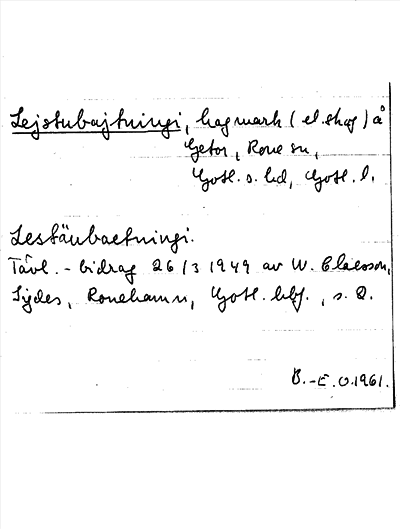 Lejstubajtningi, hagmark (el. skog) å
Getor, Rone sn,
Gotl. s. hd, Gotl. l.
Lestäubaetningi.
Tävl. - bidrag 26/3 1949 av W. Claeson,
Sijdes, Ronehamn, Gotl. hbf., s. 2.
B.-E. O. 1961.